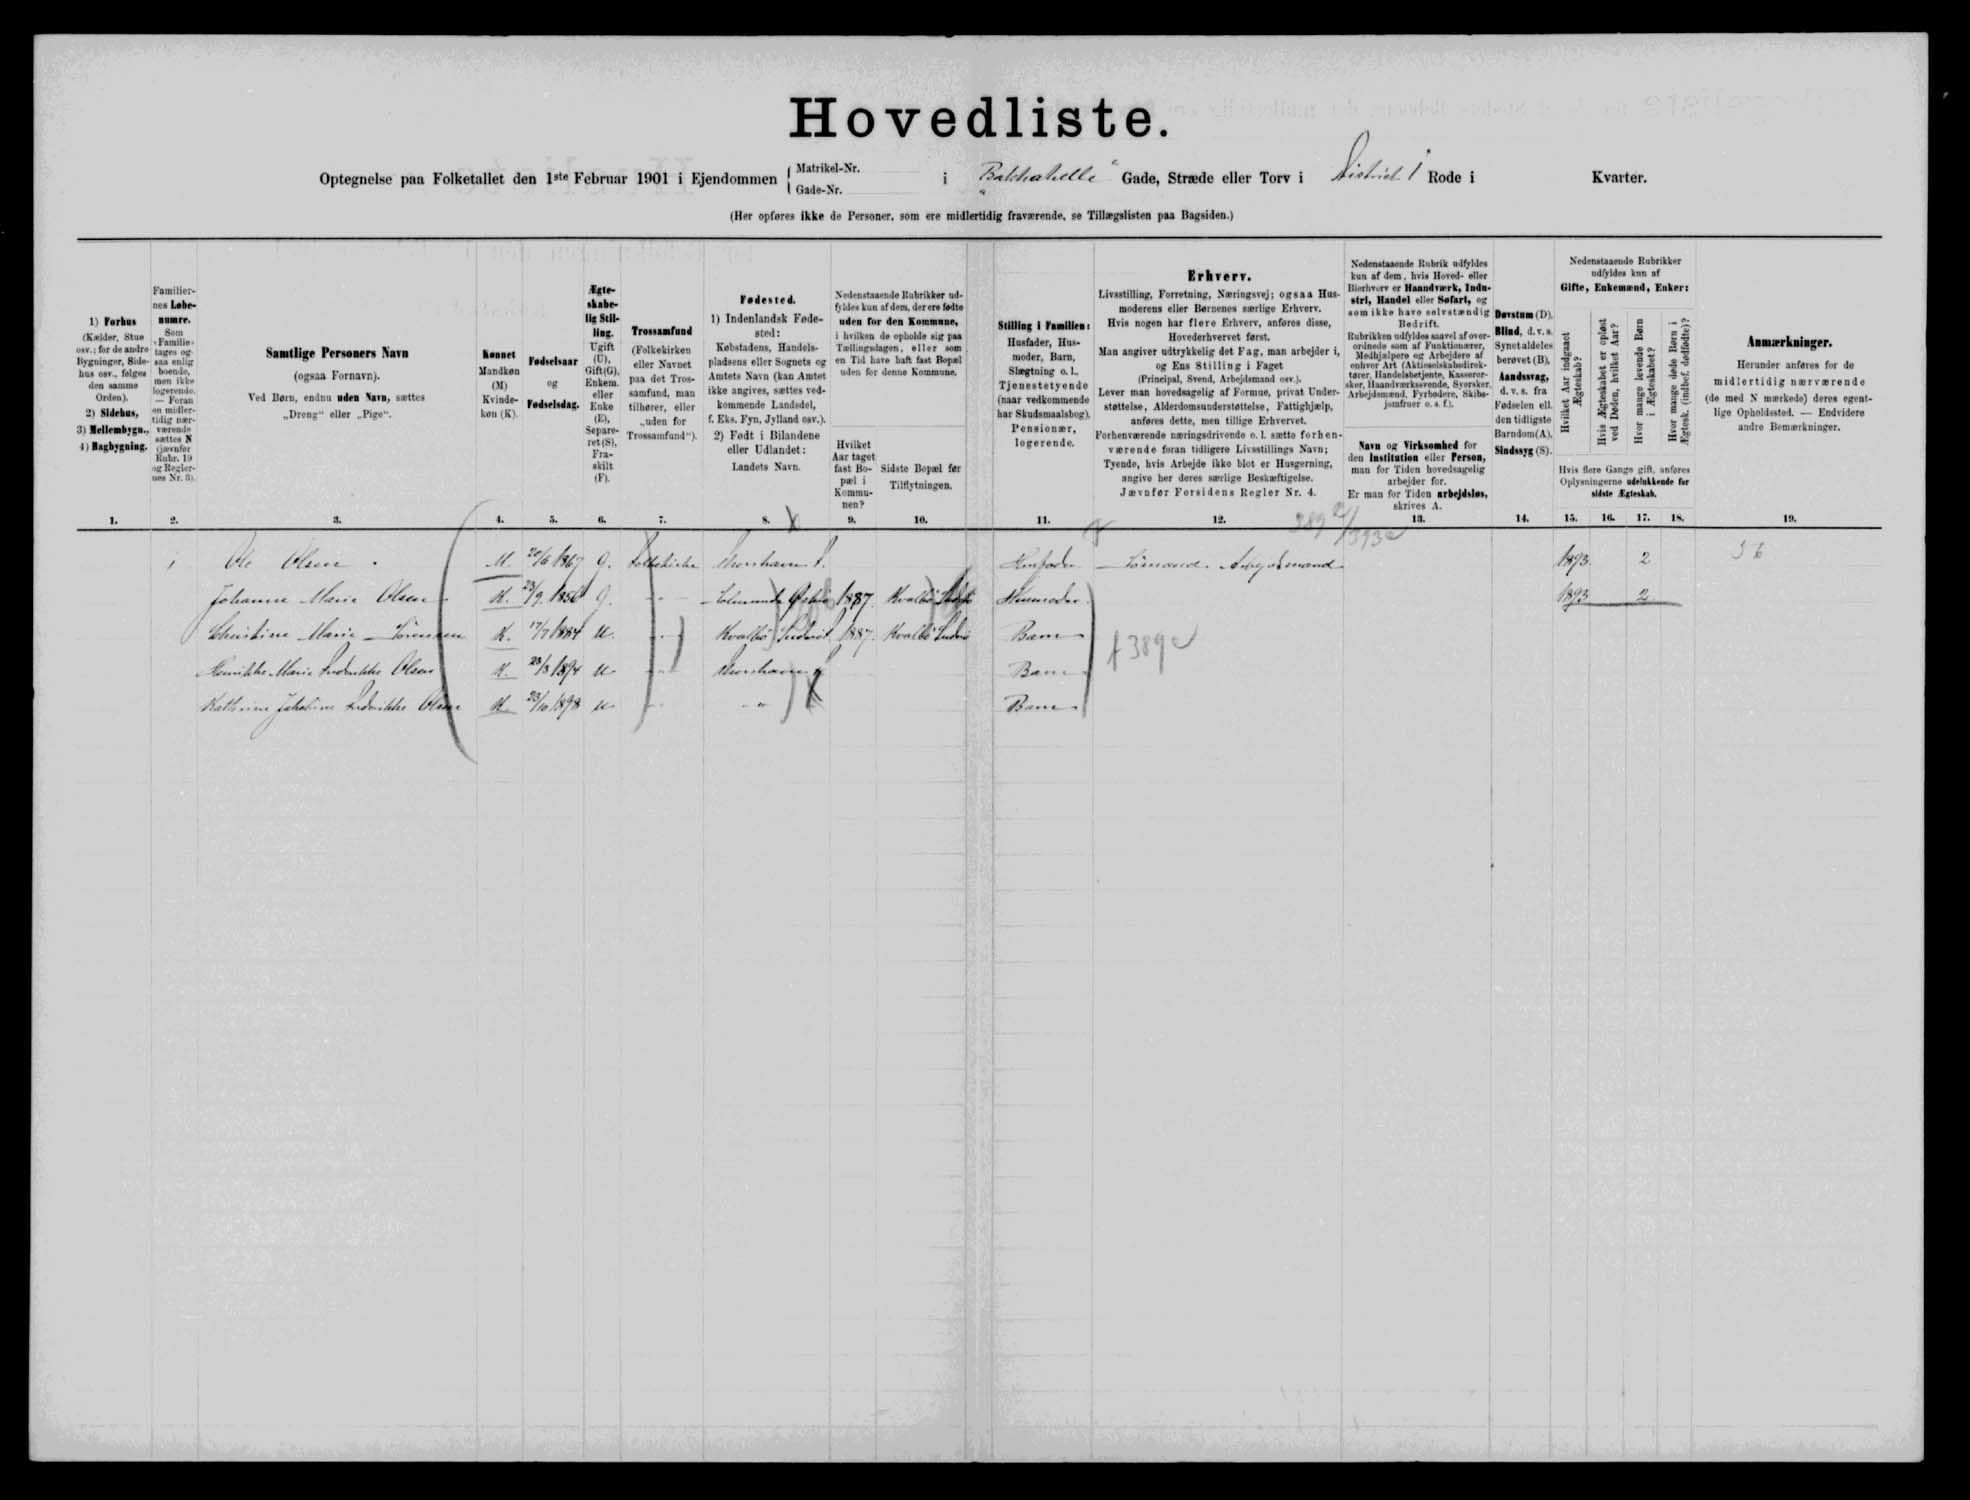 Hovedliste.
Optegnelse paa Folketallet den 1ste Februar 1901 i Ejendommen { Matrikel-Nr. Gade-Nr. i "Bakkahelle" Gade, Stræde eller Torv i District 1 Rode i Kvarter.
(Her opføres ikke de Personer, som ere midlertidig fraværende, se Tillægslisten paa Bagsiden.)
1) Forhus
(Kælder, Stue
osv.; for de andre
Bygninger, Side-
hus osv., følges
den samme
Orden).
2) Sidehus,
3) Mellembygn.,
4) Bagbygning.
Familier-
nes Løbe-
numre.
Som
„Familie“
tages og-
saa enlig
boende,
men ikke
logerende.
— Foran
en midler-
tidig nær-
værende
sættes N
(jævnfør
Rubr. 19
og Regler-
nes Nr. 3).
Samtlige Personers Navn
(ogsaa Fornavn).
Ved Børn, endnu uden Navn, sættes
„Dreng“ eller „Pige“.
Kønnet
Mandkøn
(M)
Kvinde-
køn (K).
Fødselsaar
og
Fødselsdag.
Ægte-
skabe-
lig Stil-
ling.
Ugift
(U),
Gift(G),
Enkem.
eller
Enke
(E),
Separe-
ret(S),
Fra-
skilt
(F).
Trossamfund
(Folkekirken
eller Navnet
paa det Tros-
samfund, man
tilhører, eller
„uden for
Trossamfund“).
Fødested.
1) Indenlandsk Føde-
sted:
Købstadens, Handels-
pladsens eller Sognets og
Amtets Navn (kan Amtet
ikke angives, sættes ved-
kommende Landsdel,
f. Eks. Fyn, Jylland osv.).
2) Født i Bilandene
eller Udlandet:
Landets Navn.
Nedenstaaende Rubrikker ud-
fyldes kun af dem, der ere fødte
uden for den Kommune,
i hvilken de opholde sig paa
Tællingsdagen, eller som
en Tid have haft fast Bopæl
uden for denne Kommune.
Hvilket
Aar taget
fast Bo-
pæl i
Kommu-
nen?
Sidste Bopæl før
Tilflytningen.
Stilling i Familien:
Husfader, Hus-
moder, Barn,
Slægtning o. l.,
Tjenestetyende
(naar vedkommende
har Skudsmaalsbog),
Pensionær,
logerende.
Erhverv.
Livsstilling, Forretning, Næringsvej; ogsaa Hus-
moderens eller Børnenes særlige Erhverv.
Hvis nogen har flere Erhverv, anføres disse,
Hovederhvervet først.
Man angiver udtrykkelig det Fag, man arbejder i,
og Ens Stilling i Faget
(Principal, Svend, Arbejdsmand osv.).
Lever man hovedsagelig af Formue, privat Under-
støttelse, Alderdomsunderstøttelse, Fattighjælp,
anføres dette, men tillige Erhvervet.
Forhenværende næringsdrivende o. l. sætte forhen-
værende foran tidligere Livsstillings Navn;
Tyende, hvis Arbejde ikke blot er Husgerning,
angive her deres særlige Beskæftigelse.
Jævnfør Forsidens Regler Nr. 4.
Nedenstaaende Rubrik udfyldes
kun af dem, hvis Hoved- eller
Bierhverv er Haandværk, Indu-
stri, Handel eller Søfart, og
som ikke have selvstændig
Bedrift.
Rubrikken udfyldes saavel af over-
ordnede som af Funktionærer,
Medhjælpere og Arbejdere af
enhver Art (Aktieselskabsdirek-
tører, Handelsbetjente, Kasserer-
sker, Haandværkssvende, Syersker,
Arbejdsmænd, Fyrbødere, Skibs-
jomfruer o. s. f.).
Navn og Virksomhed for
den Institution eller Person,
man for Tiden hovedsagelig
arbejder for.
Er man for Tiden arbejdsløs,
skrives A.
Døvstum (D),
Blind, d. v. s.
Synet aldeles
berøvet (B),
Aandssvag,
d. v. s. fra
Fødselen ell.
den tidligste
Barndom(A),
Sindssyg (S).
Nedenstaaende Rubrikker
udfyldes kun af
Gifte, Enkemænd, Enker:
Hvilket Aar indgaaet
Ægteskab?
Hvis Ægteskabet er opløst
ved Døden, hvilket Aar?
Hvor mange levende Børn
i Ægteskabet?
Hvor mange døde Børn i
Ægtesk. (indbef. dødfødte)?
Hvis flere Gange gift, anføres
Oplysningerne udelukkende for
sidste Ægteskab.
Anmærkninger.
Herunder anføres for de
midlertidig nærværende
(de med N mærkede) deres egent-
lige Opholdssted. — Endvidere
andre Bemærkninger.
1. 2. 3. 4. 5. 6. 7. 8. 9. 10. 11. 12. 13. 14. 15. 16. 17. 18. 19.
1 Ole Olsen M. 20/6 1867 G. Folkekirke Thorshavn S. Husfader Sømand. Arbejdsmand 1893. 2
Johanne Marie Olsen K. 23/9 1856 G. Østerø 1887. Kvalbø Suderø Husmoder 1893 2
Christine Marie Sörensen K. 17/7 1884 U. Kvalbø Suderö 1887. Kvalbø Suderø Barn
Henrikke Marie Frederikke Olsen K. 23/3 1894 U Thorshavn Barn
Kathrine Jakobine Olsen K. 23/10 1898 U " Barn
389